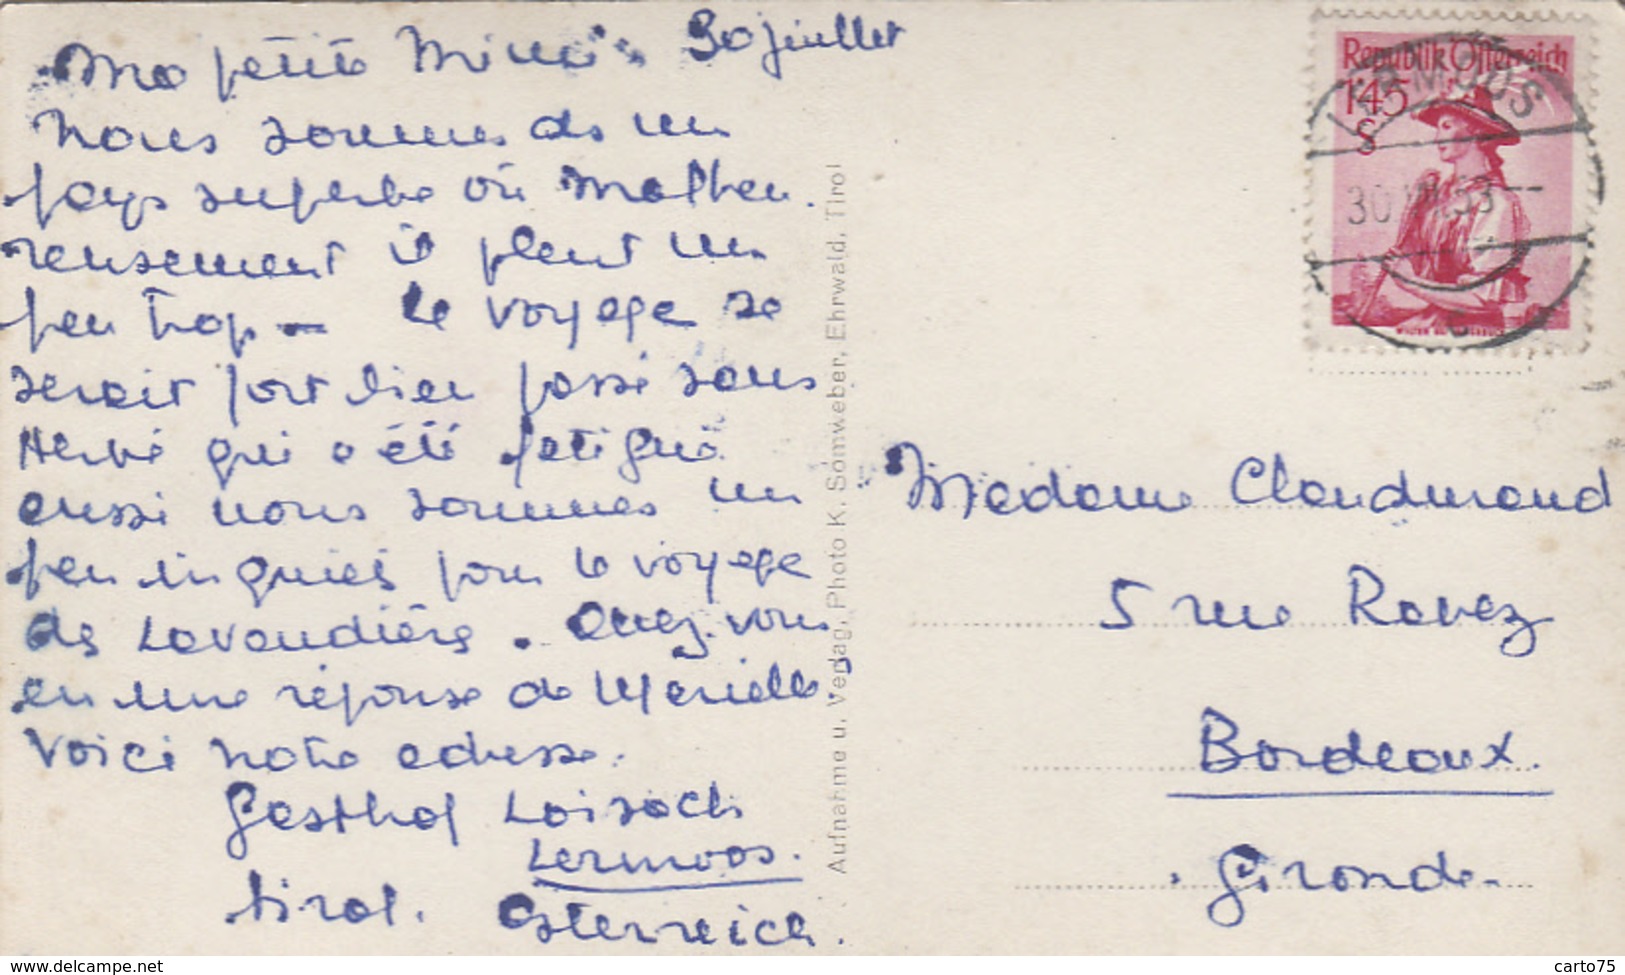 30 juillet
Ma petite Mimi.
Nous sommes ds un
pays superbe où malheu.
reusement il pleut un
peu trop — le voyage se
serait fort bien passé sans
Hervé qui a été fatigué
aussi nous sommes un
peu inquiets pour le voyage
de Lavandière. Avez-vous
eu une réponse de Marielle,
Voici notre adresse.
Gasthof Loisach
Lermoos.
Tirol. Österreich.
Aufnahme u. Verlag, Photo K. Somweber, Ehrwald, Tirol
Republik Österreich
1'45
S
LERMOOS
30.VII.53
c
Madame Claudmond
5 rue Ravez
Bordeaux.
Gironde.
delcampe.net
carto75